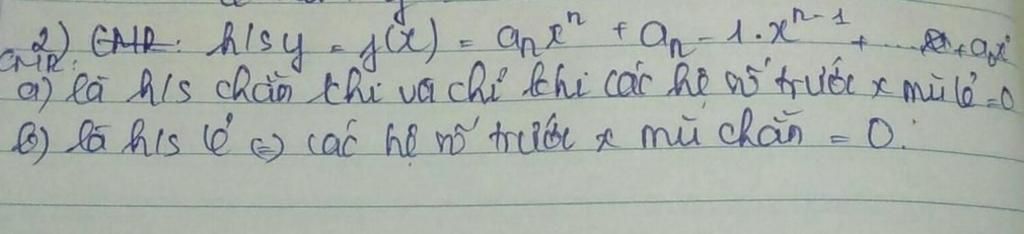 2) CMR: h/s y = f(x) = aₙxⁿ + aₙ - 1.xⁿ⁻¹ + ... + a₀x⁰
CMR:
a) là h/s chẵn khi và chỉ khi các hệ số trước x mũ lẻ = 0
b) là h/s lẻ <=> các hệ số trước x mũ chẵn = 0.